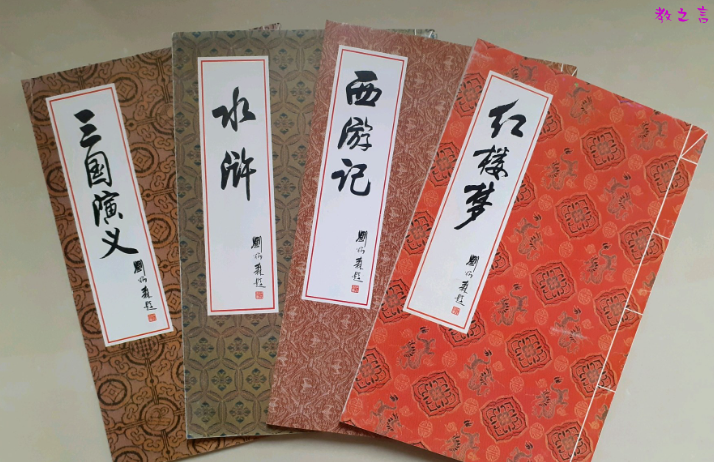 教之言
三国演义
刘炳森题
水浒
刘炳森题
西游记
刘炳森题
红楼梦
刘炳森题